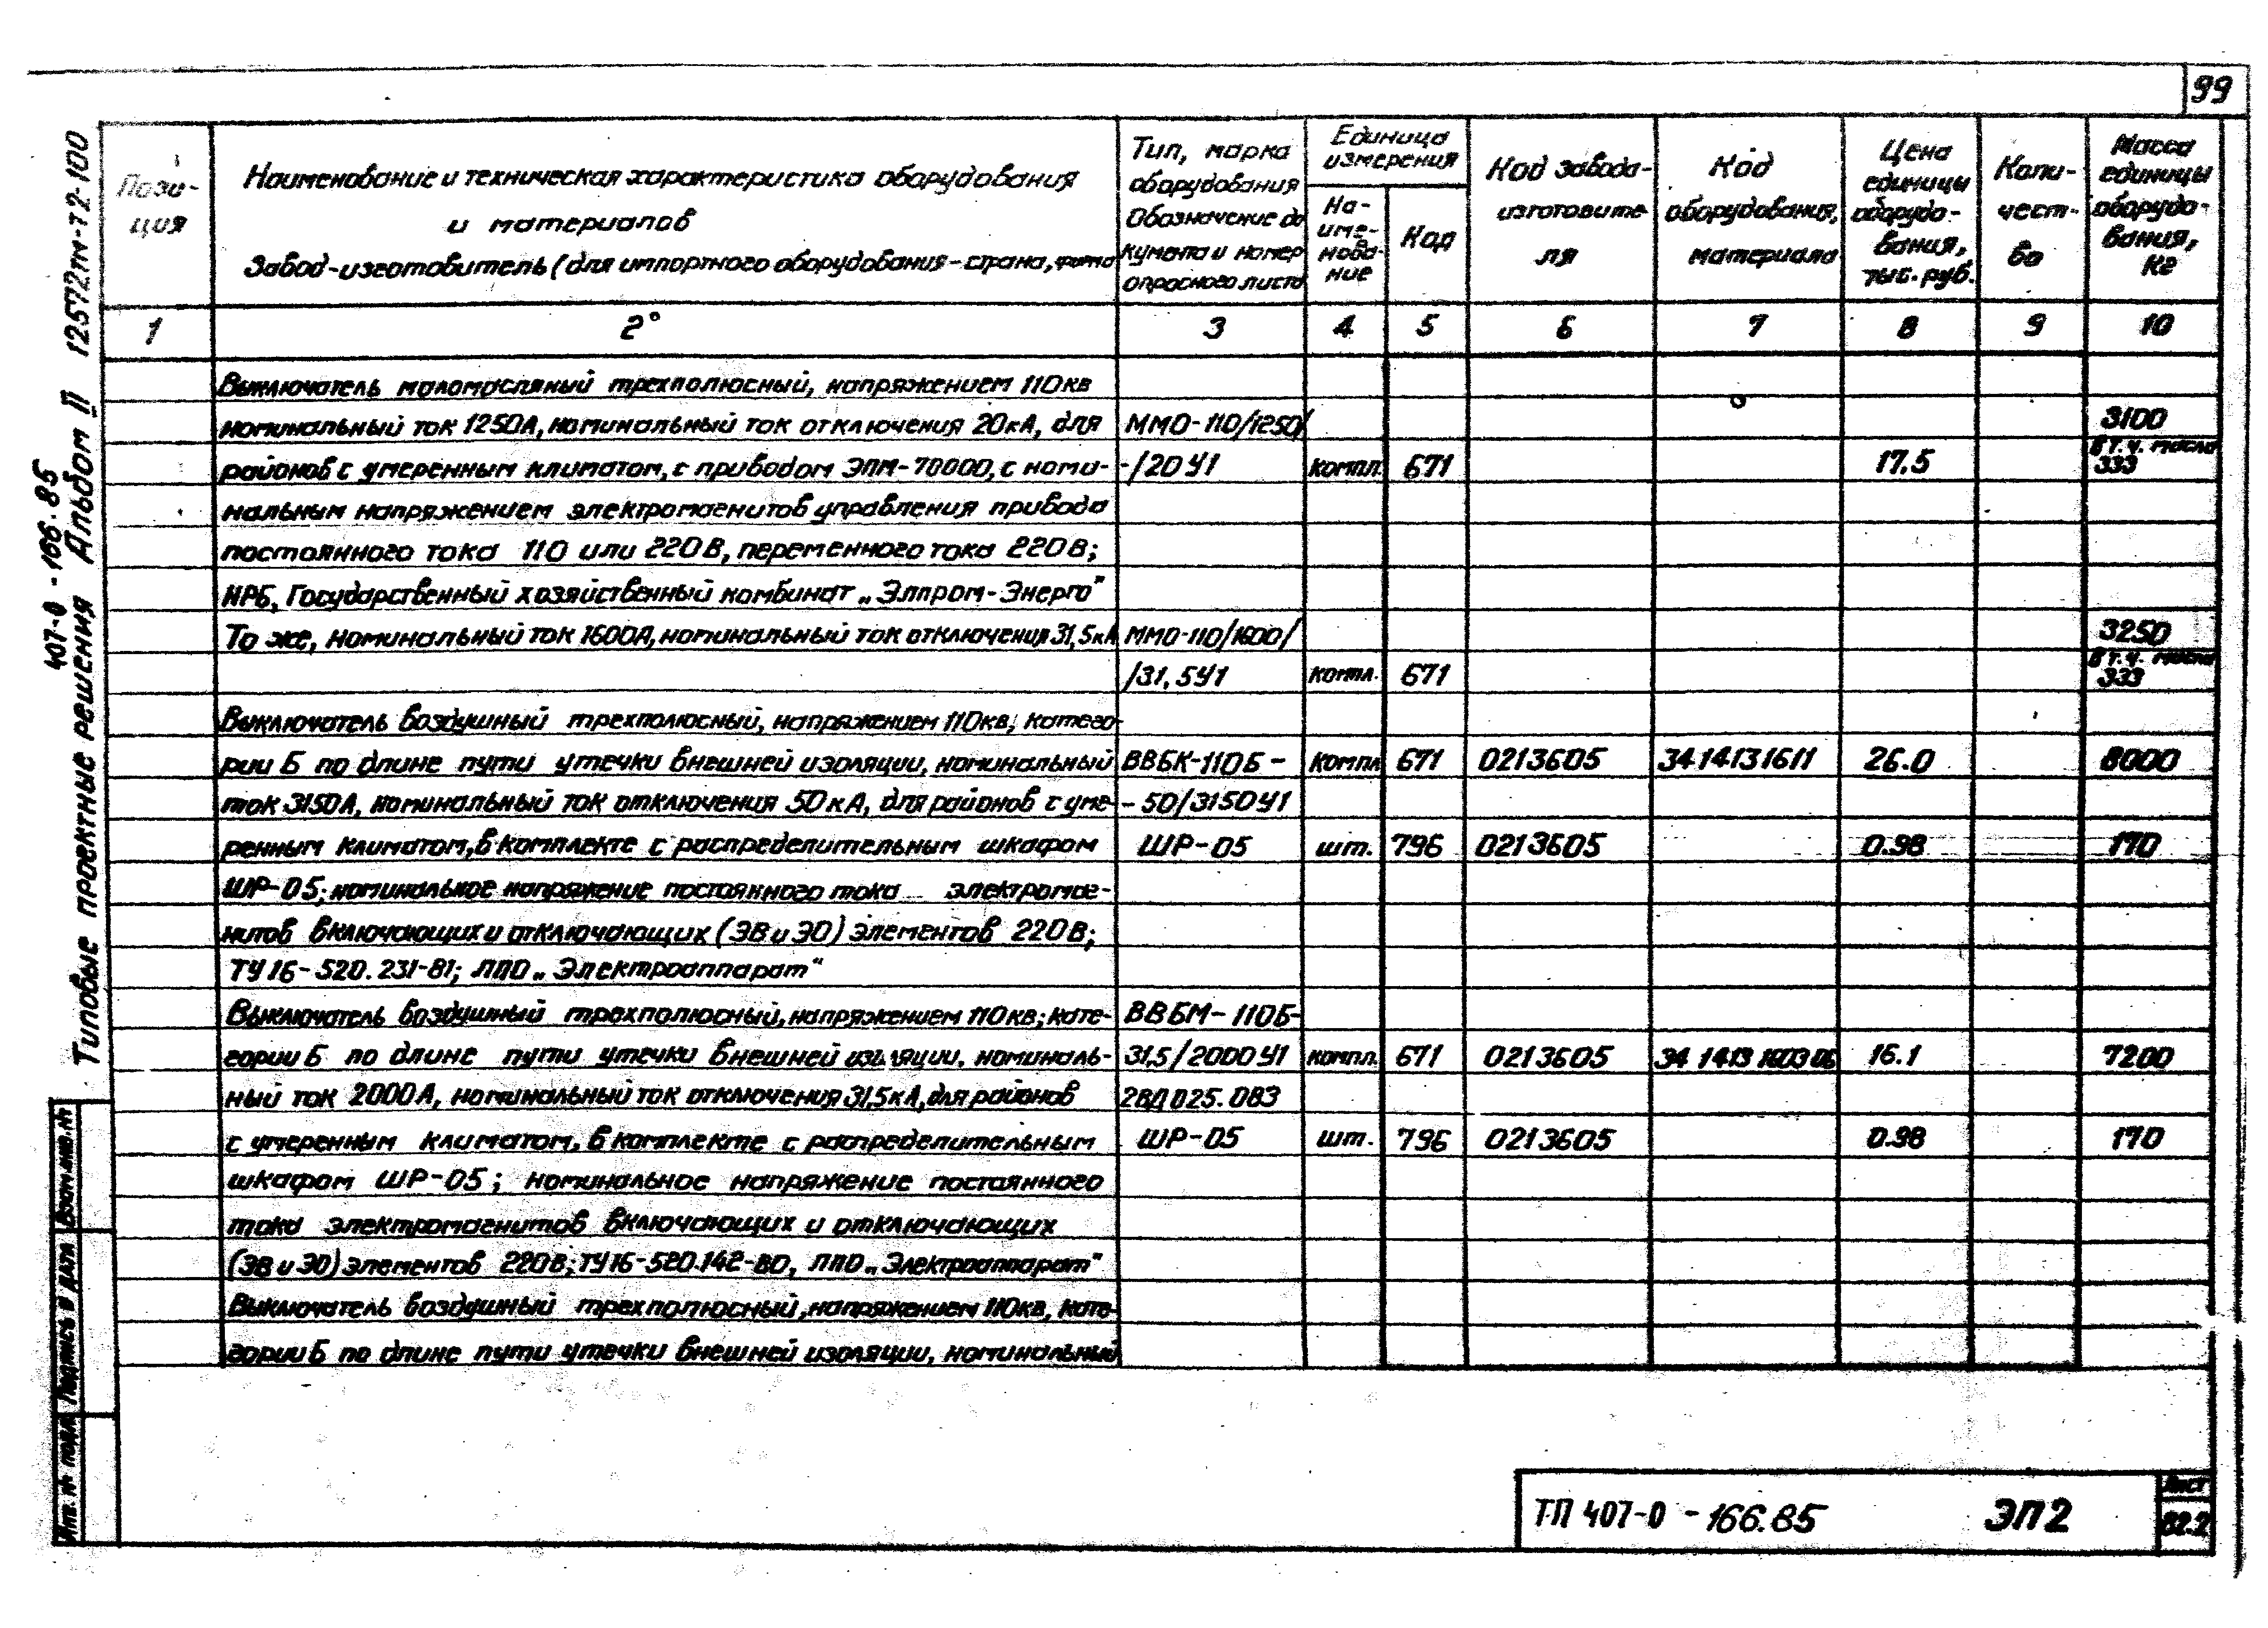 99
Пози-
ция
Наименование и техническая характеристика оборудования
и материалов
Завод-изготовитель (для импортного оборудования - страна, фирма
Тип, марка
оборудования
Обозначение до
кумента и номер
опросного листа
Единица
измерения
На-
име-
нова-
ние
Код
Код завода-
изготовите
ля
Код
оборудования,
материала
Цена
единицы
оборудо-
вания,
тыс. руб.
Коли-
чест-
во
Масса
единицы
оборудо-
вания,
кг
1 2 3 4 5 6 7 8 9 10
Выключатель маломасляный трехполюсный, напряжением 110кв
номинальный ток 1250А, номинальный ток отключения 20кА, для ММО-110/1250/ 3100
в т.ч. масла
районов с умеренным климатом, с приводом ЭПМ-70000, с номи- -/20У1 компл. 671 17.5 333
нальным напряжением электромагнитов управления привода
постоянного тока 110 или 220В, переменного тока 220В;
НРБ, Государственный хозяйственный комбинат „Элпром-Энерго"
То же, номинальный ток 1600А, номинальный ток отключения 31,5кА ММО-110/1600/ 3250
в т.ч. масла
/31,5У1 компл. 671 333
Выключатель воздушный трехполюсный, напряжением 110кв, катего-
рии Б по длине пути утечки внешней изоляции, номинальный ВВБК-110Б- компл 671 0213605 3414131611 26.0 8000
ток 3150А, номинальный ток отключения 50кА, для районов с уме- -50/3150У1
ренным климатом, в комплекте с распределительным шкафом ШР-05 шт. 796 0213605 0.98 170
ШР-05; номинальное напряжение постоянного тока электромаг-
нитов включающих и отключающих (ЭВ и ЭО) элементов 220В;
ТУ16-520.231-81; ЛПО „Электроаппарат"
Выключатель воздушный трехполюсный, напряжением 110кв; кате- ВВБМ-110Б-
гории Б по длине пути утечки внешней изоляции, номиналь- 31,5/2000У1 компл. 671 0213605 34 1413 1603 06 16.1 7200
ный ток 2000А, номинальный ток отключения 31,5кА, для районов 2ВД025.083
с умеренным климатом, в комплекте с распределительным ШР-05 шт. 796 0213605 0.98 170
шкафом ШР-05; номинальное напряжение постоянного
тока электромагнитов включающих и отключающих
(ЭВ и ЭО) элементов 220В; ТУ16-520.142-80, ЛПО „Электроаппарат"
Выключатель воздушный трехполюсный, напряжением 110кв, кате-
гории Б по длине пути утечки внешней изоляции, номинальный
407-0-166.85
Типовые проектные решения Альбом II 12572тм-т2-100
Взам.инв.№
Подпись и дата
Инв. № подл
ТП 407-0-166.85 ЭП2
Лист
82.2